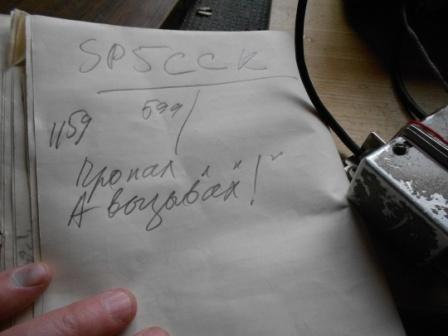 SP5CCK
1159 599/
пропал "
А вызывал!"